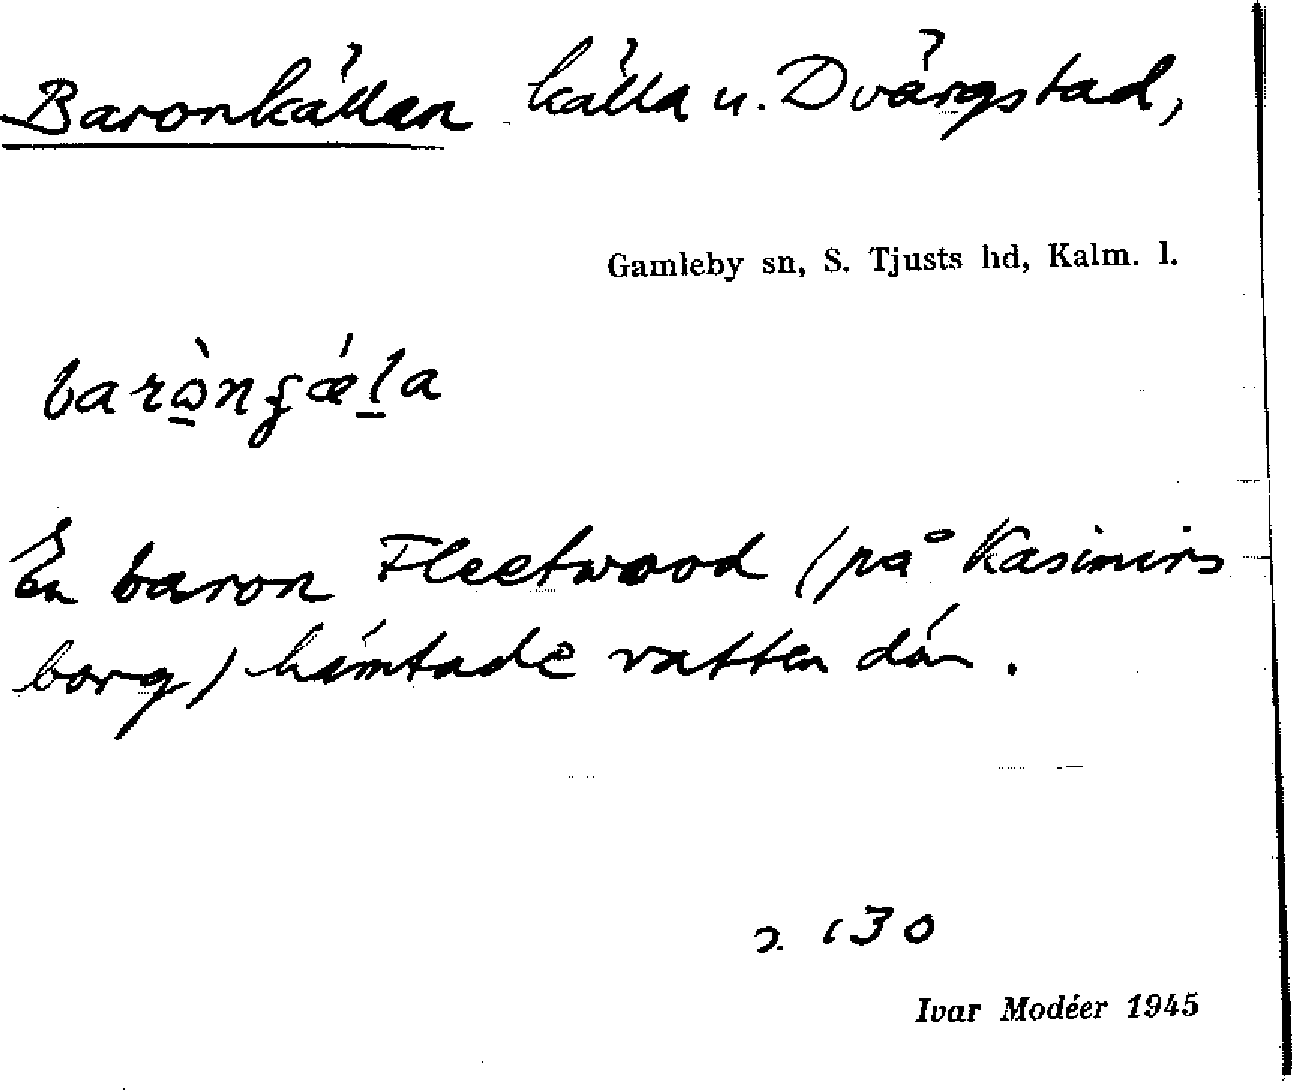 Baronkällan källa u. Dvärgstad,
Gamleby sn, S. Tjusts hd, Kalm. l.
En baron Fleetwood (på Kasimirs
borg) hämtade vatten där.
s. 130
Ivar Modéer 1945